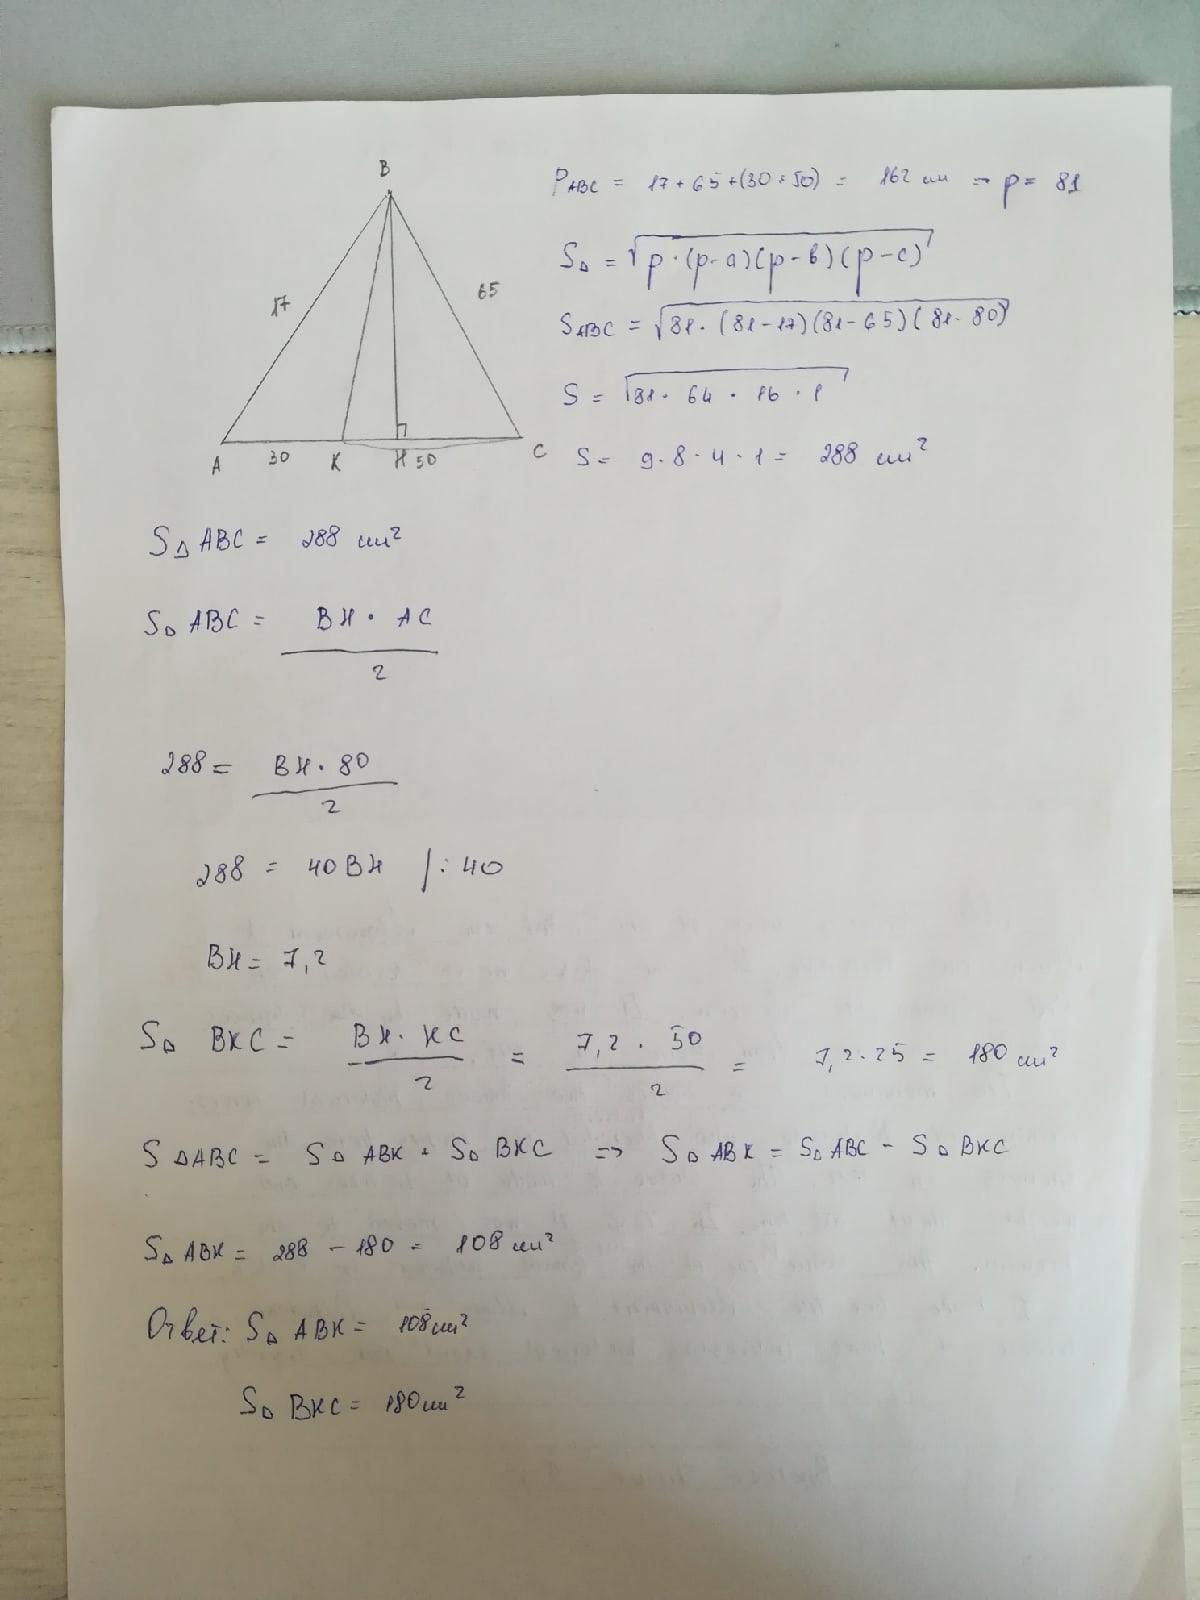 B
17
65
A 30 K H 50 C
P ABC = 17 + 65 + (30 + 50) = 162 см ⇒ p = 81
S△ = √p · (p - a)(p - в)(p - c)
S ABC = √81 · (81 - 17)(81 - 65)(81 - 80)
S = √81 · 64 · 16 · 1
S = 9 · 8 · 4 · 1 = 288 см²
S△ ABC = 288 см²
S△ ABC = BH · AC / 2
288 = BH · 80 / 2
288 = 40BH | : 40
BH = 7,2
S△ BKC = BH · KC / 2 = 7,2 · 50 / 2 = 7,2 · 25 = 180 см²
S△ABC = S△ ABK + S△ BKC ⇒ S△ ABK = S△ ABC - S△ BKC
S△ ABK = 288 - 180 = 108 см²
Ответ: S△ ABK = 108 см²
S△ BKC = 180 см²